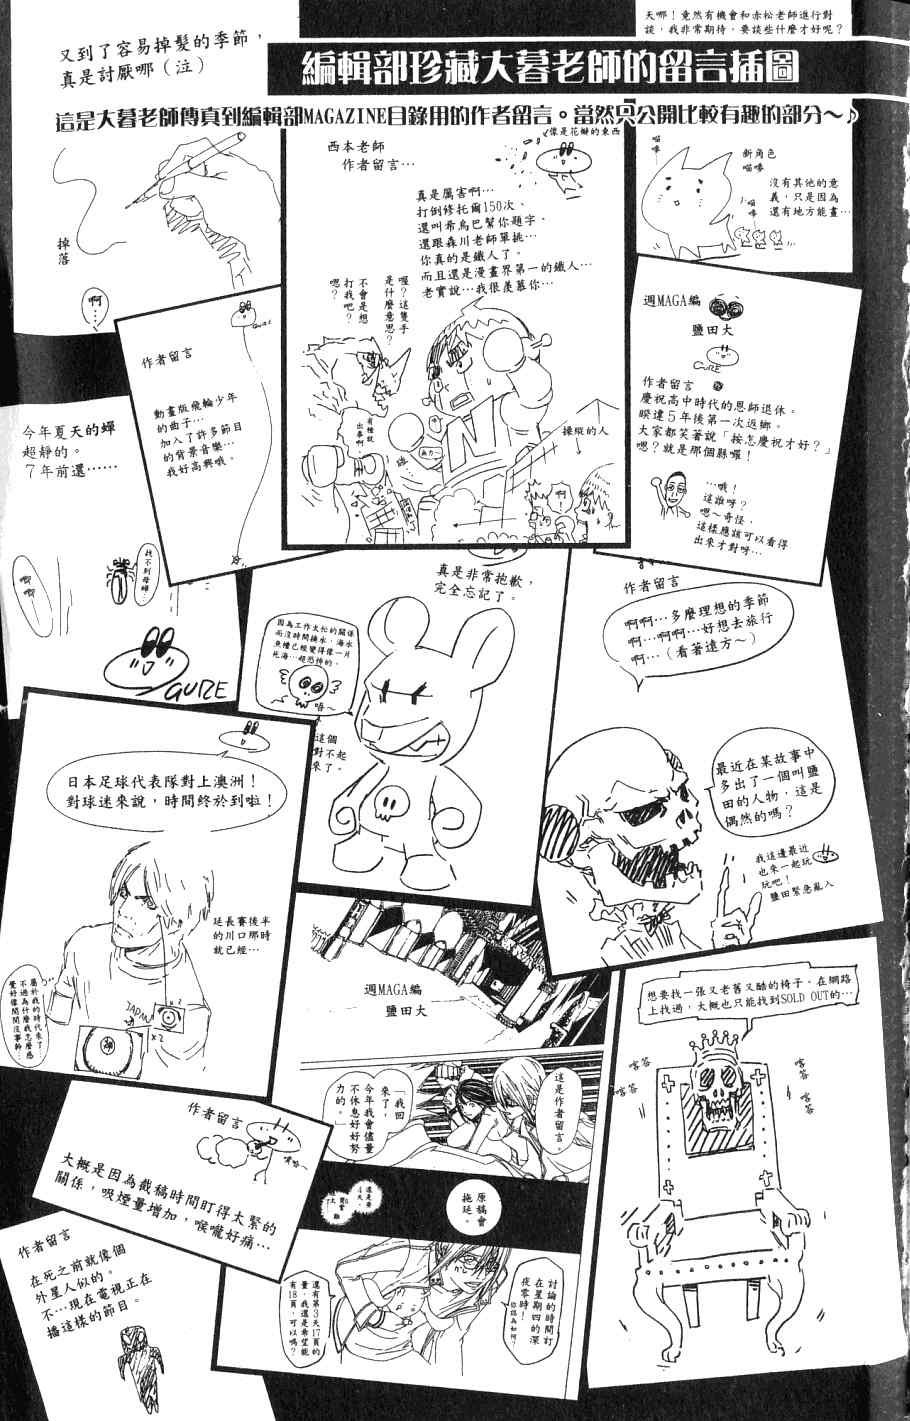 天哪！竟然有機會和赤松老師進行對
談，我非常期待，要談些什麼才好呢？
又到了容易掉髮的季節，
真是討厭哪（注）
編輯部珍藏大暮老師的留言插圖
這是大暮老師傳真到編輯部MAGAZINE目錄用的作者留言。當然只公開比較有趣的部分～♪
掉
落
啊
……
西本老師
作者留言…
像是花瓣的東西
真是厲害啊…
打倒修托爾150次、
還叫希烏巴幫你題字、
還跟森川老師單挑…
你真的是鐵人了。
而且還是漫畫界第一的鐵人…
老實說…我很羨慕你…
喔？這隻手
是什麼意思？
不會是想
打我吧？
嗯？
操縱的人
啊！
喵
嗶
新角色
喵嗶
沒有其他的意
義，只是因為
還有地方能畫…
週MAGA編
鹽田大
GURE
作者留言
慶祝高中時代的恩師退休。
睽違5年後第一次返鄉。
大家都笑著說「按怎慶祝才好？」
嗯？就是那個縣囉！
…哦！
這誰呀？
嗯～奇怪，
這樣應該可以看得
出來才對呀…
GURE
作者留言
動畫版飛輪少年
的曲子…
加入了許多節目
的背景音樂…
我好高興哦。
今年夏天的蟬
超靜的。
7年前還……
找不到母蟬…
GURE
真是非常抱歉，
完全忘記了。
因為工作太忙的關係
而沒時間換水，海水
魚槽已經變得像一片
死海…超恐怖的。
唔～
這個
對不起
來了。
作者留言
啊啊…多麼理想的季節
啊…啊啊…好想去旅行
啊…（看著遠方～）
最近在某故事中
多出了一個叫鹽
田的人物，這是
偶然的嗎？
我這邊最近
也來一起玩
玩吧！
鹽田緊急亂入
日本足球代表隊對上澳洲！
對球迷來說，時間終於到啦！
延長賽後半
的川口那時
就已經…
屬於我的時代來了
不過為什麼我怎麼感
覺好像閒閒沒事幹…
JAPAN
x2
x2
週MAGA編
鹽田大
這是作者留言。
「我回
來了，
今年我會儘量
不休息好好努
力的。」
原稿會
拖延。
討論的時間訂
在星期四的深
夜零時！
你認為如何？
還有第3天17頁的
量，我還是希望能
有18頁，可以嗎？
想要找一張又老舊又酷的椅子。在網路
上找過，大概也只能找到SOLD OUT的…
喀答
喀答
喀答
喀答
作者留言
咳～
大概是因為截稿時間盯得太緊的
關係，吸煙量增加，喉嚨好痛…
作者留言
在死之前就像個
外星人似的。
不…現在電視正在
播這樣的節目。